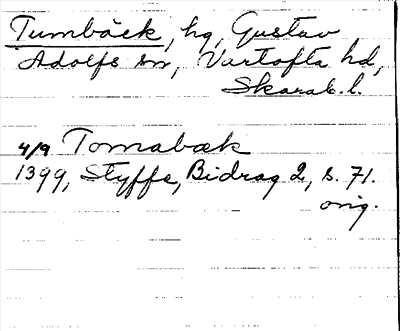 Tumbäck, hg, Gustav
Adolfs sn, Vartofta hd,
Skarab. l.
4/9 Tomabæk
1399, Styffe, Bidrag 2, s. 71.
orig.